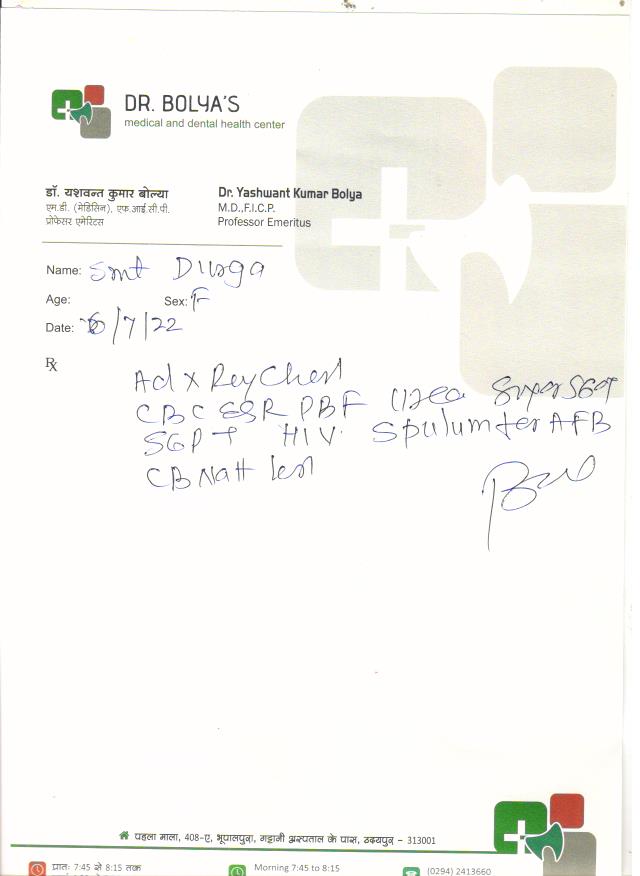 DR. BOLYA'S
medical and dental health center
डॉ. यशवन्त कुमार बोल्या
एम.डी. (मेडिसिन), एफ.आई.सी.पी.
प्रोफेसर एमेरिटस
Dr. Yashwant Kumar Bolya
M.D.,F.I.C.P.
Professor Emeritus
Name: Smt Durga
Age: Sex: F
Date: 6/7/22
Rx
Ad x Ray Chest
CBC ESR PBF Urea SGOT
SGPT HIV. Sputum for AFB
CB Natt test
पहला माला, 408-ए, भूपालपुरा, गट्टानी अस्पताल के पास, उदयपुर - 313001
प्रातः 7:45 से 8:15 तक
Morning 7:45 to 8:15
(0294) 2413660